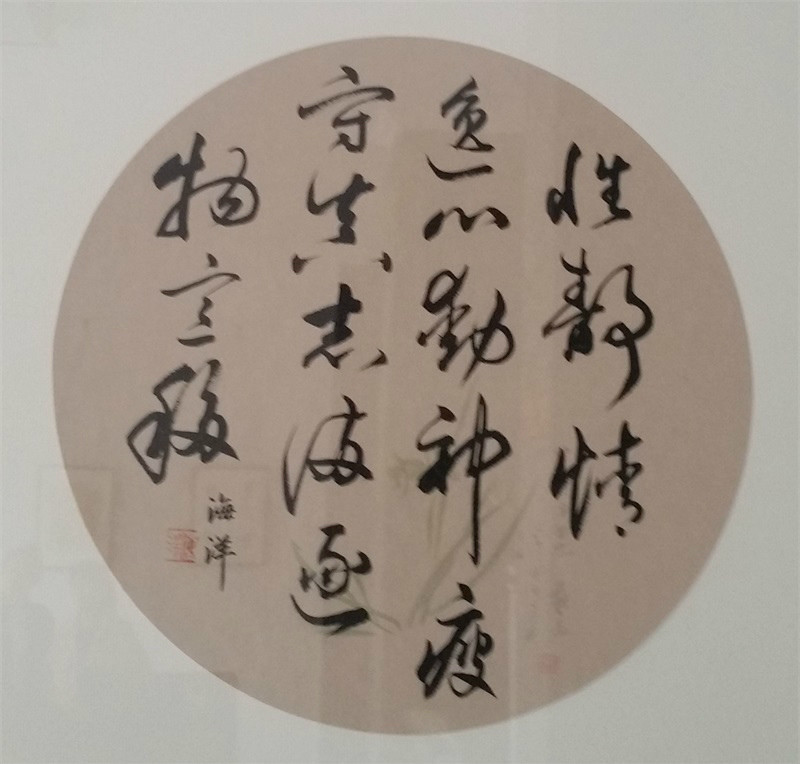 性静情
逸心動神瘦
守真志满逐
物意移
海洋